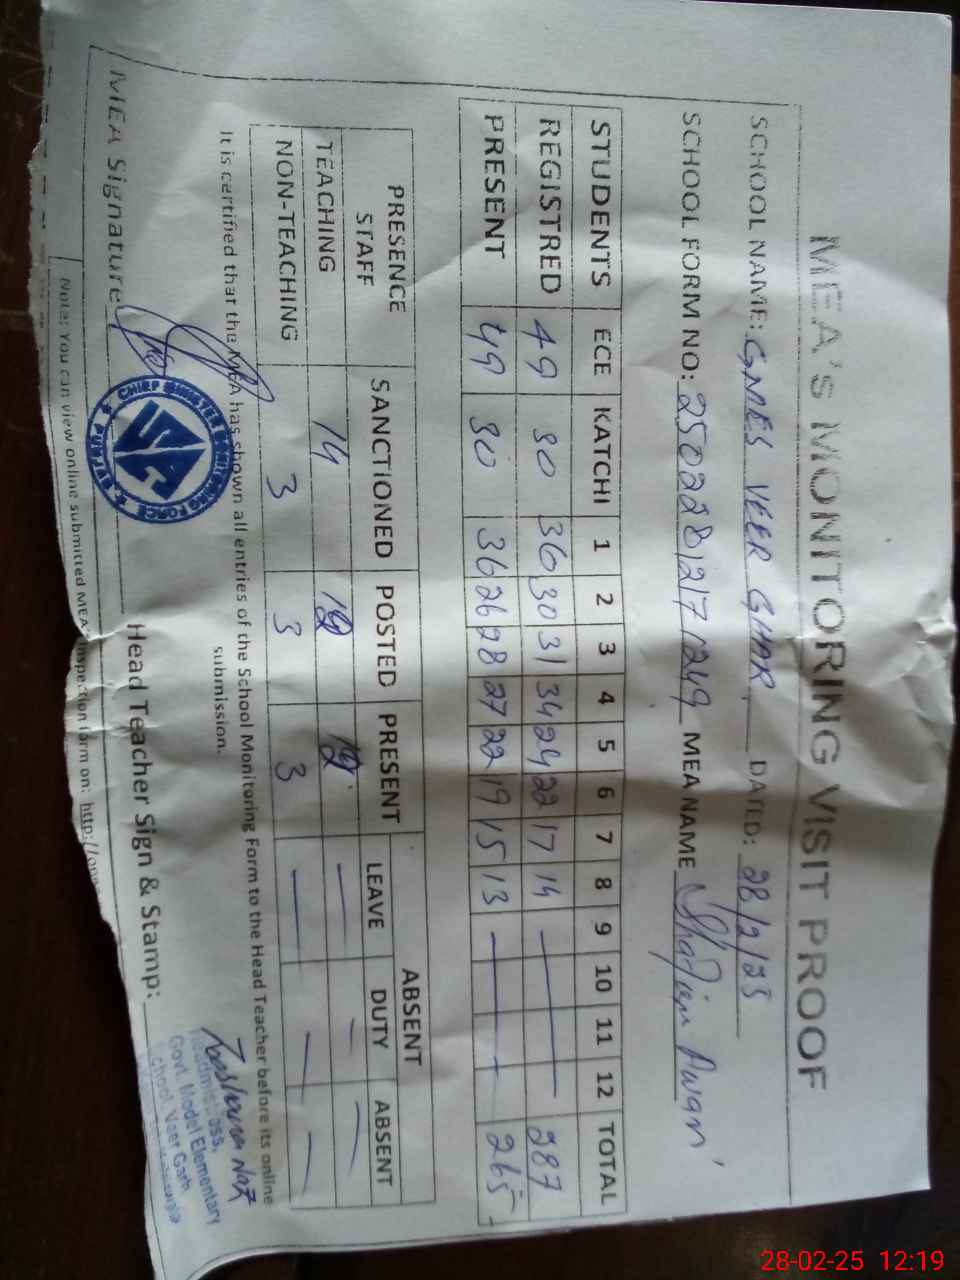 MEA'S MONITORING VISIT PROOF
SCHOOL NAME: GMES VEER GHAR DATED: 28/2/25
SCHOOL FORM NO: 250228121771249 MEA NAME Awan
STUDENTS ECE KATCHI 1 2 3 4 5 6 7 8 9 10 11 12 TOTAL
REGISTRED 49 30 36 30 31 34 24 22 17 14 — 287
PRESENT 49 30 36 26 28 27 22 19 15 13 — 265
PRESENCE STAFF SANCTIONED POSTED PRESENT ABSENT
LEAVE DUTY ABSENT
TEACHING 14 12 12 — — —
NON-TEACHING 3 3 3 — — —
It is certified that the MEA has shown all entries of the School Monitoring Form to the Head Teacher before its online
submission.
MEA Signature Head Teacher Sign & Stamp:
CHIEF MINISTER MONITORING FORCE
PUNJAB
Headmistress,
Govt. Model Elementary
School Veer Garh
Note: You can view online submitted MEA's inspection form on: http://
28-02-25 12:19